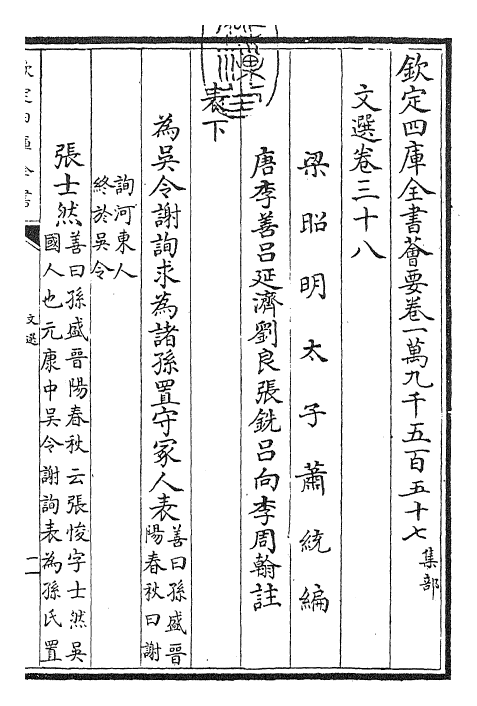 欽定四庫全書薈要卷一萬九千五百五十七 集部
文選卷三十八
梁昭明太子蕭統編
唐李善呂延濟劉良張銑呂向李周翰註
表下
為吳令謝詢求為諸孫置守冢人表 善曰孫盛晉
陽春秋曰謝
詢河東人
終於吳令
張士然 善曰孫盛晉陽春秋云張悛字士然吳
國人也元康中吳令謝詢表為孫氏置
文選
一